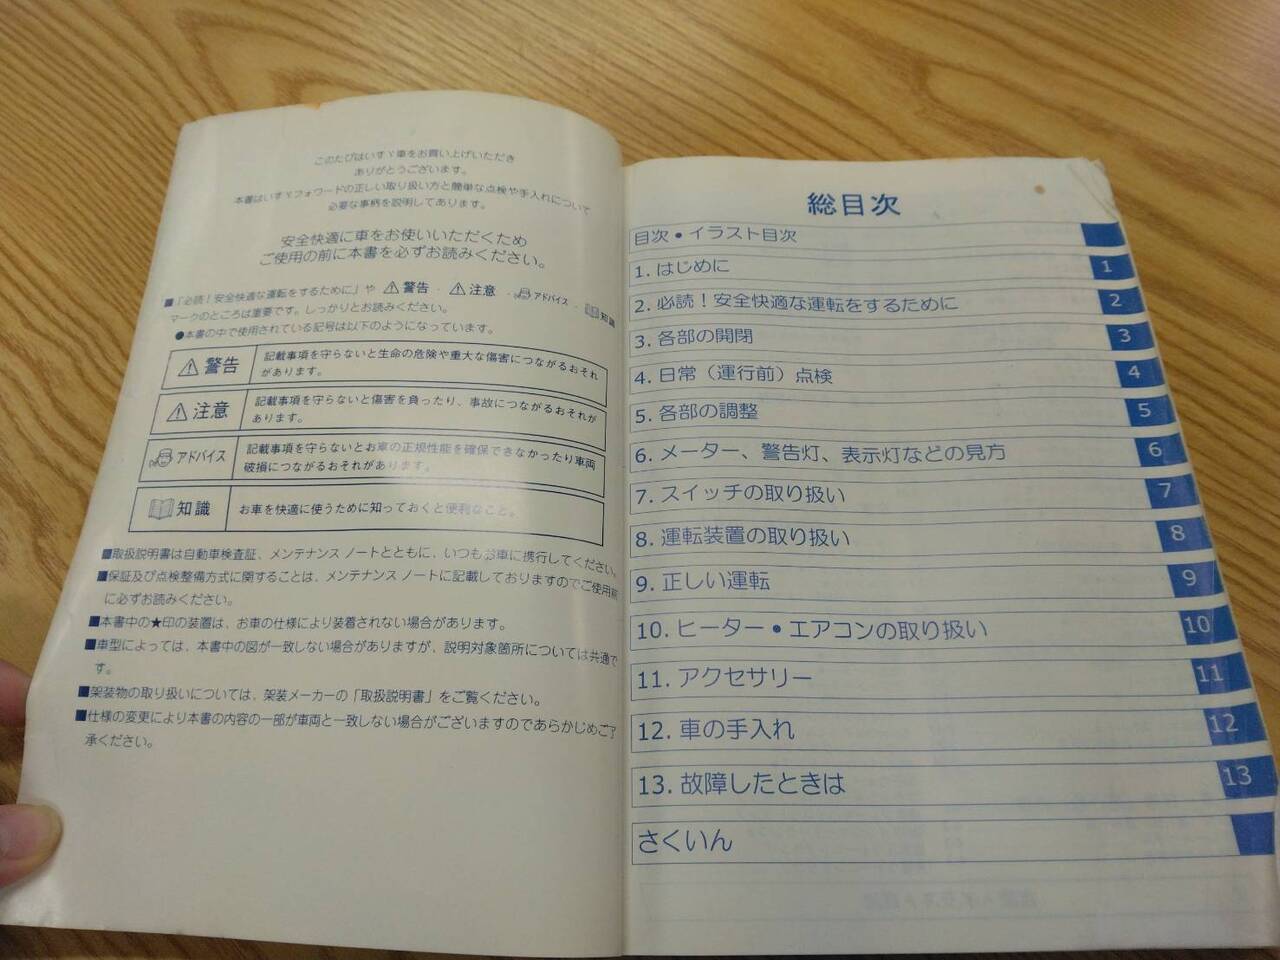 このたびはいすゞ車をお買い上げいただき
ありがとうございます。
本書はいすゞフォワードの正しい取り扱い方と簡単な点検や手入れについて
必要な事柄を説明してあります。
安全快適に車をお使いいただくため
ご使用の前に本書を必ずお読みください。
■「必読！安全快適な運転をするために」や ⚠警告・⚠注意・アドバイス・知識
マークのところは重要です。しっかりとお読みください。
●本書の中で使用されている記号は以下のようになっています。
⚠警告
記載事項を守らないと生命の危険や重大な傷害につながるおそれ
があります。
⚠注意
記載事項を守らないと傷害を負ったり、事故につながるおそれが
あります。
アドバイス
記載事項を守らないとお車の正規性能を確保できなかったり車両
破損につながるおそれがあります。
知識
お車を快適に使うために知っておくと便利なこと。
■取扱説明書は自動車検査証、メンテナンス ノートとともに、いつもお車に携行してください。
■保証及び点検整備方式に関することは、メンテナンス ノートに記載しておりますのでご使用前
に必ずお読みください。
■本書中の★印の装置は、お車の仕様により装着されない場合があります。
■車型によっては、本書中の図が一致しない場合がありますが、説明対象箇所については共通で
す。
■架装物の取り扱いについては、架装メーカーの「取扱説明書」をご覧ください。
■仕様の変更により本書の内容の一部が車両と一致しない場合がございますのであらかじめご了
承ください。
総目次
目次・イラスト目次
1. はじめに 1
2. 必読！安全快適な運転をするために 2
3. 各部の開閉 3
4. 日常（運行前）点検 4
5. 各部の調整 5
6. メーター、警告灯、表示灯などの見方 6
7. スイッチの取り扱い 7
8. 運転装置の取り扱い 8
9. 正しい運転 9
10. ヒーター・エアコンの取り扱い 10
11. アクセサリー 11
12. 車の手入れ 12
13. 故障したときは 13
さくいん